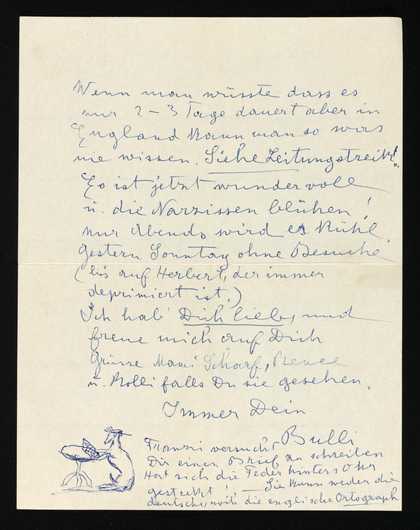 Wenn man wüsste dass es
nur 2-3 Tage dauert aber in
England kann man so was
nie wissen. Siehe Zeitungstreik!
Es ist jetzt wundervoll
u. die Narzissen blühen!
nur Abends wird es kühl.
gestern Sonntag ohne Besuche
(bis auf Herbert, der immer
deprimiert ist.)
Ich hab' Dich lieb, und
freue mich auf Dich
Grüsse Mami Scharf, Renee
u. Rolli falls Du sie gesehen.
Immer Dein
Bulli
versucht
Dir einen Brief zu schreiben
Hat sich die Feder hinters Ohr
gesteckt. Sie kann weder die
deutsche noch die englische Ortograph